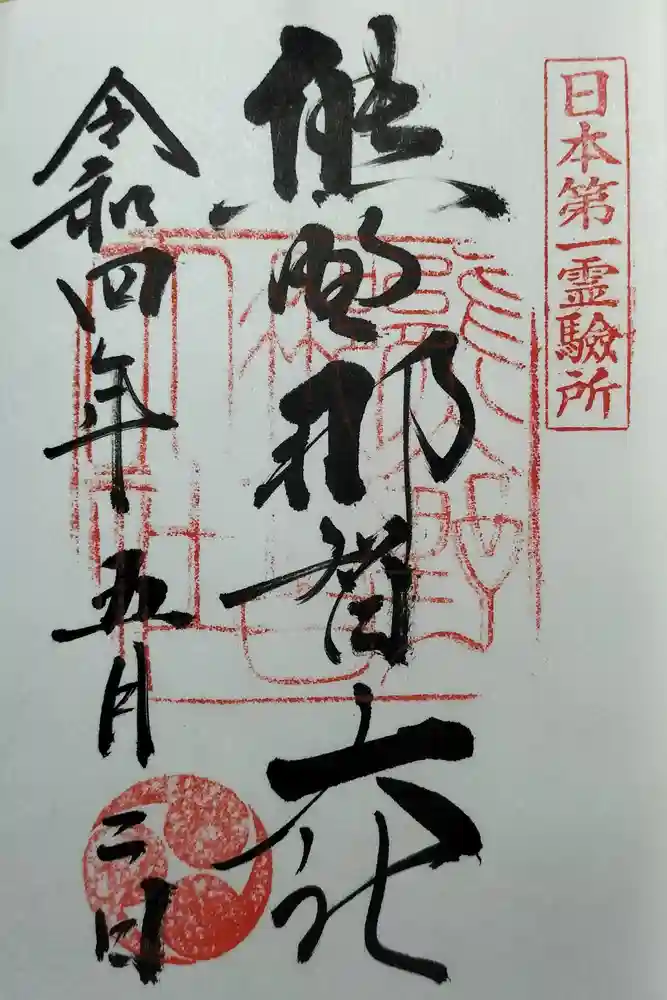 日本第一霊驗所
熊野那智大社
令和四年五月二日